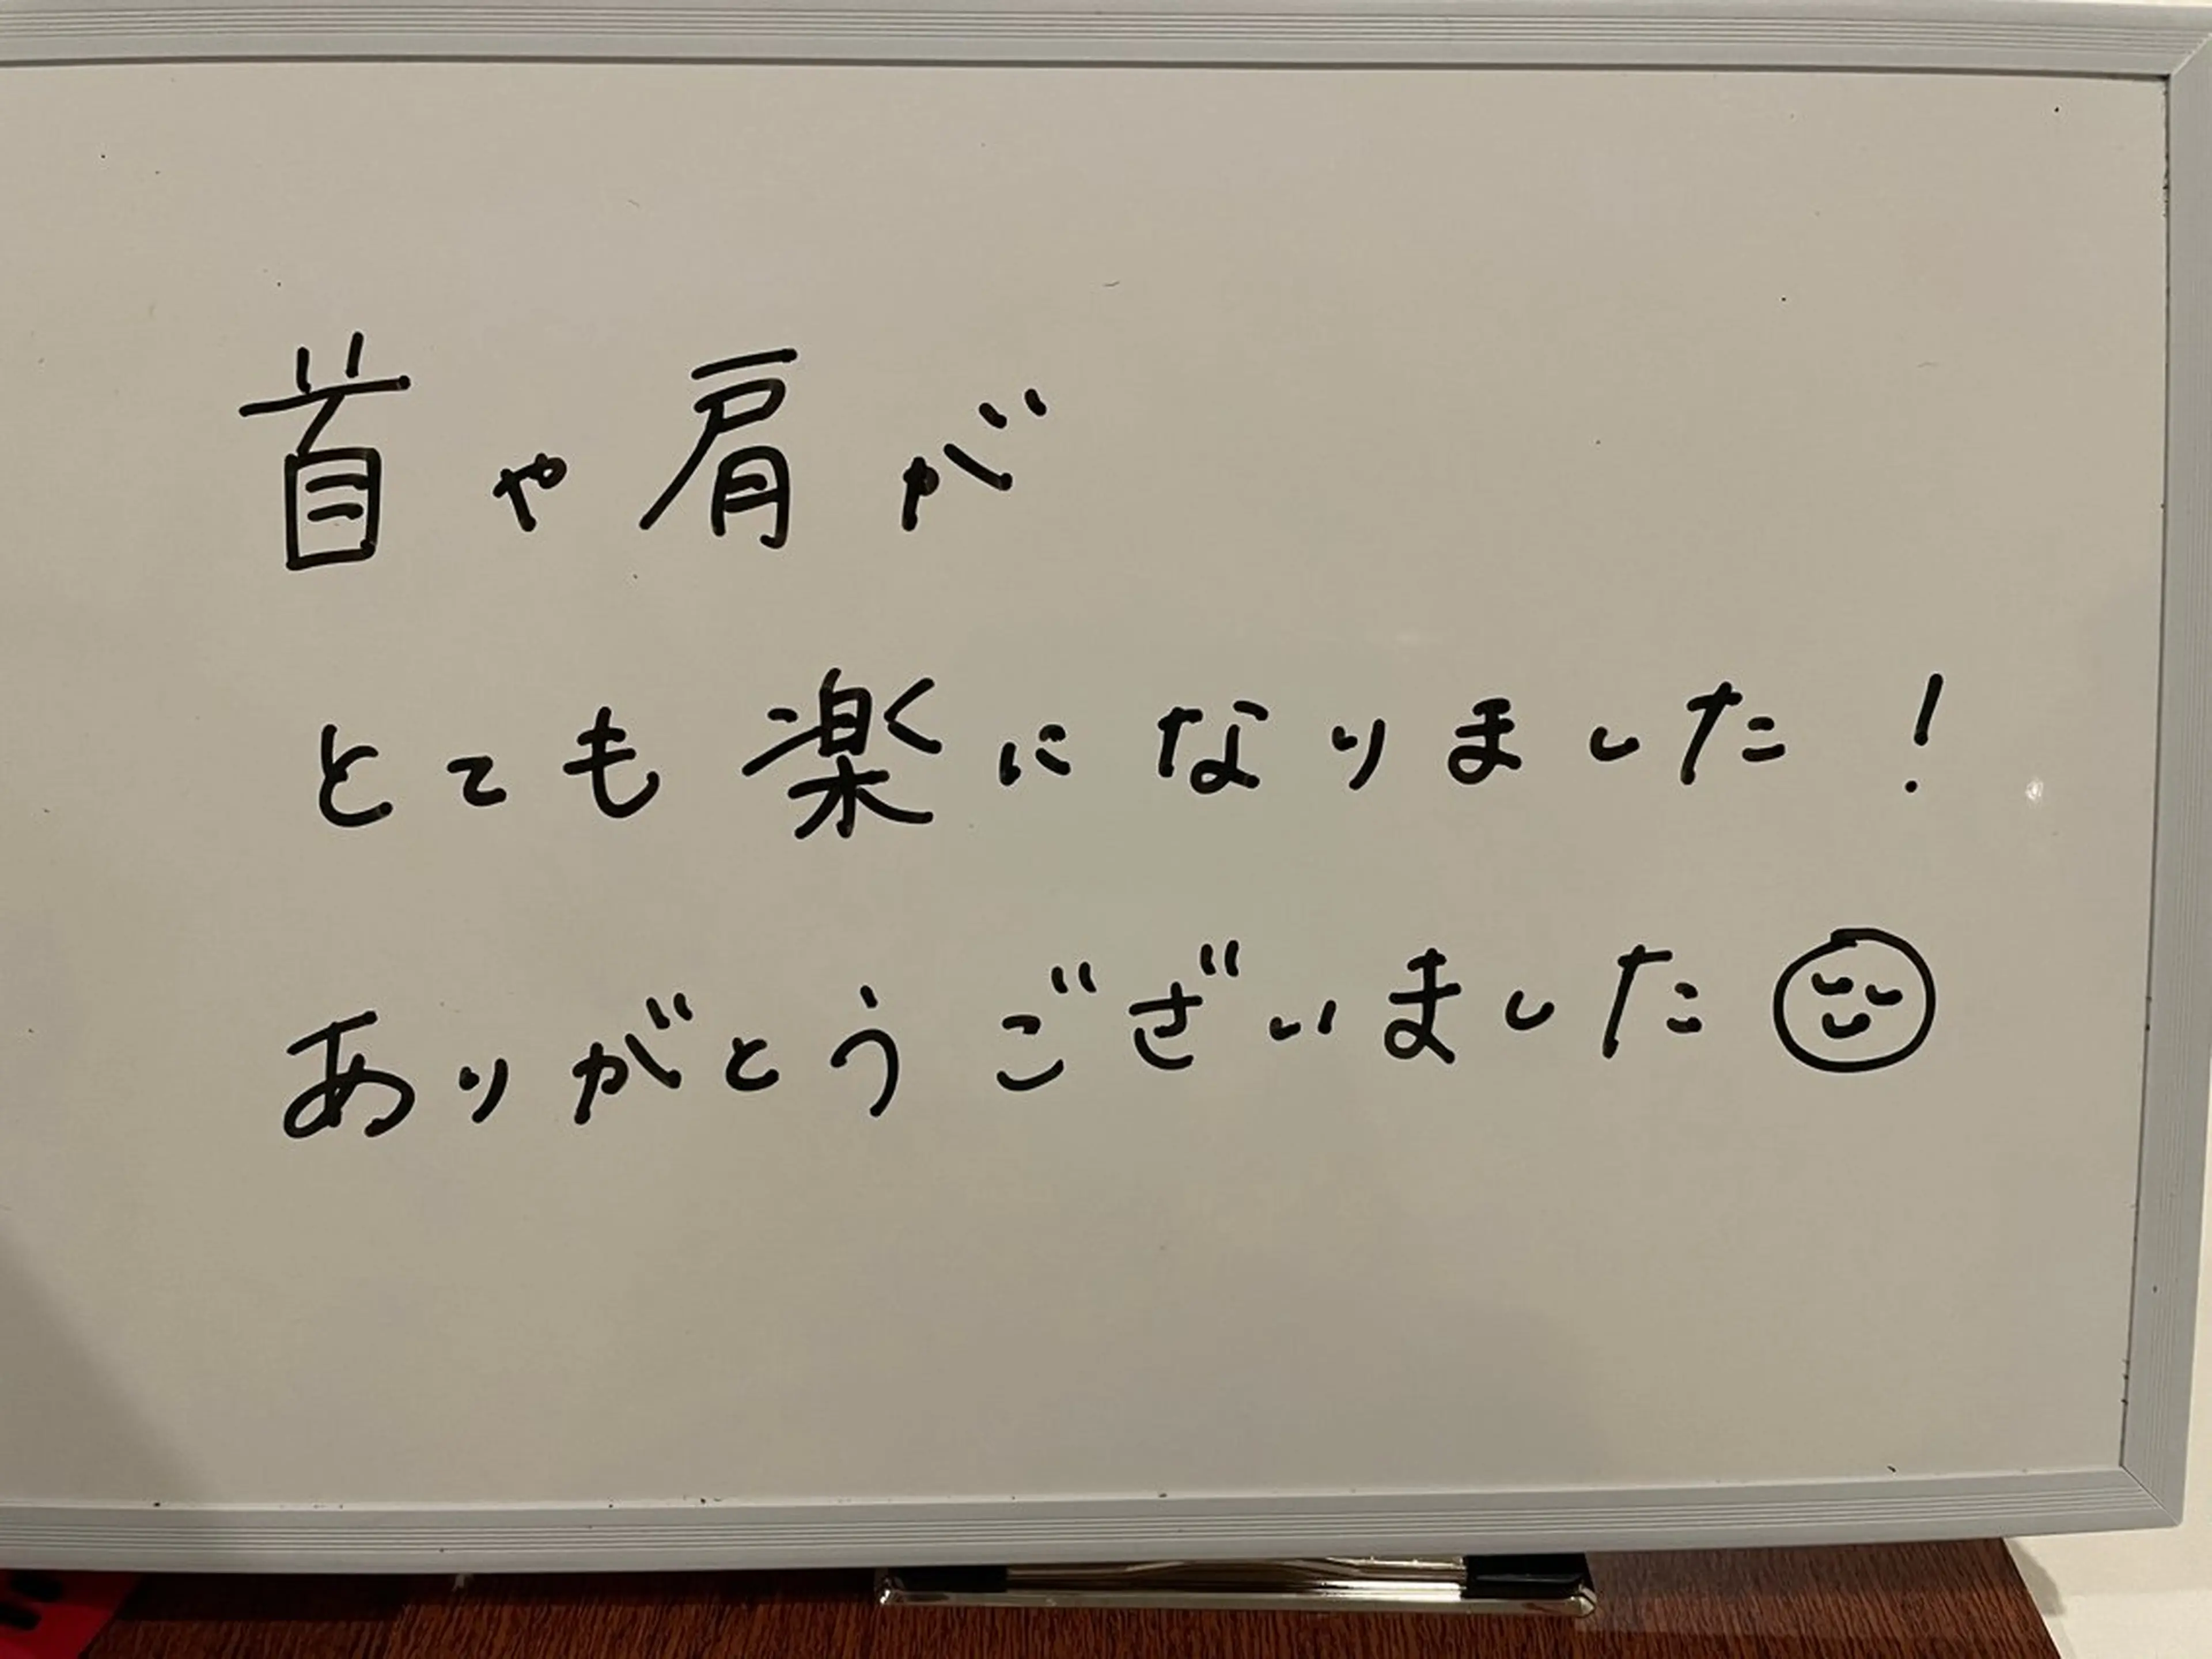 首や肩が
とても楽になりました！
ありがとうございました